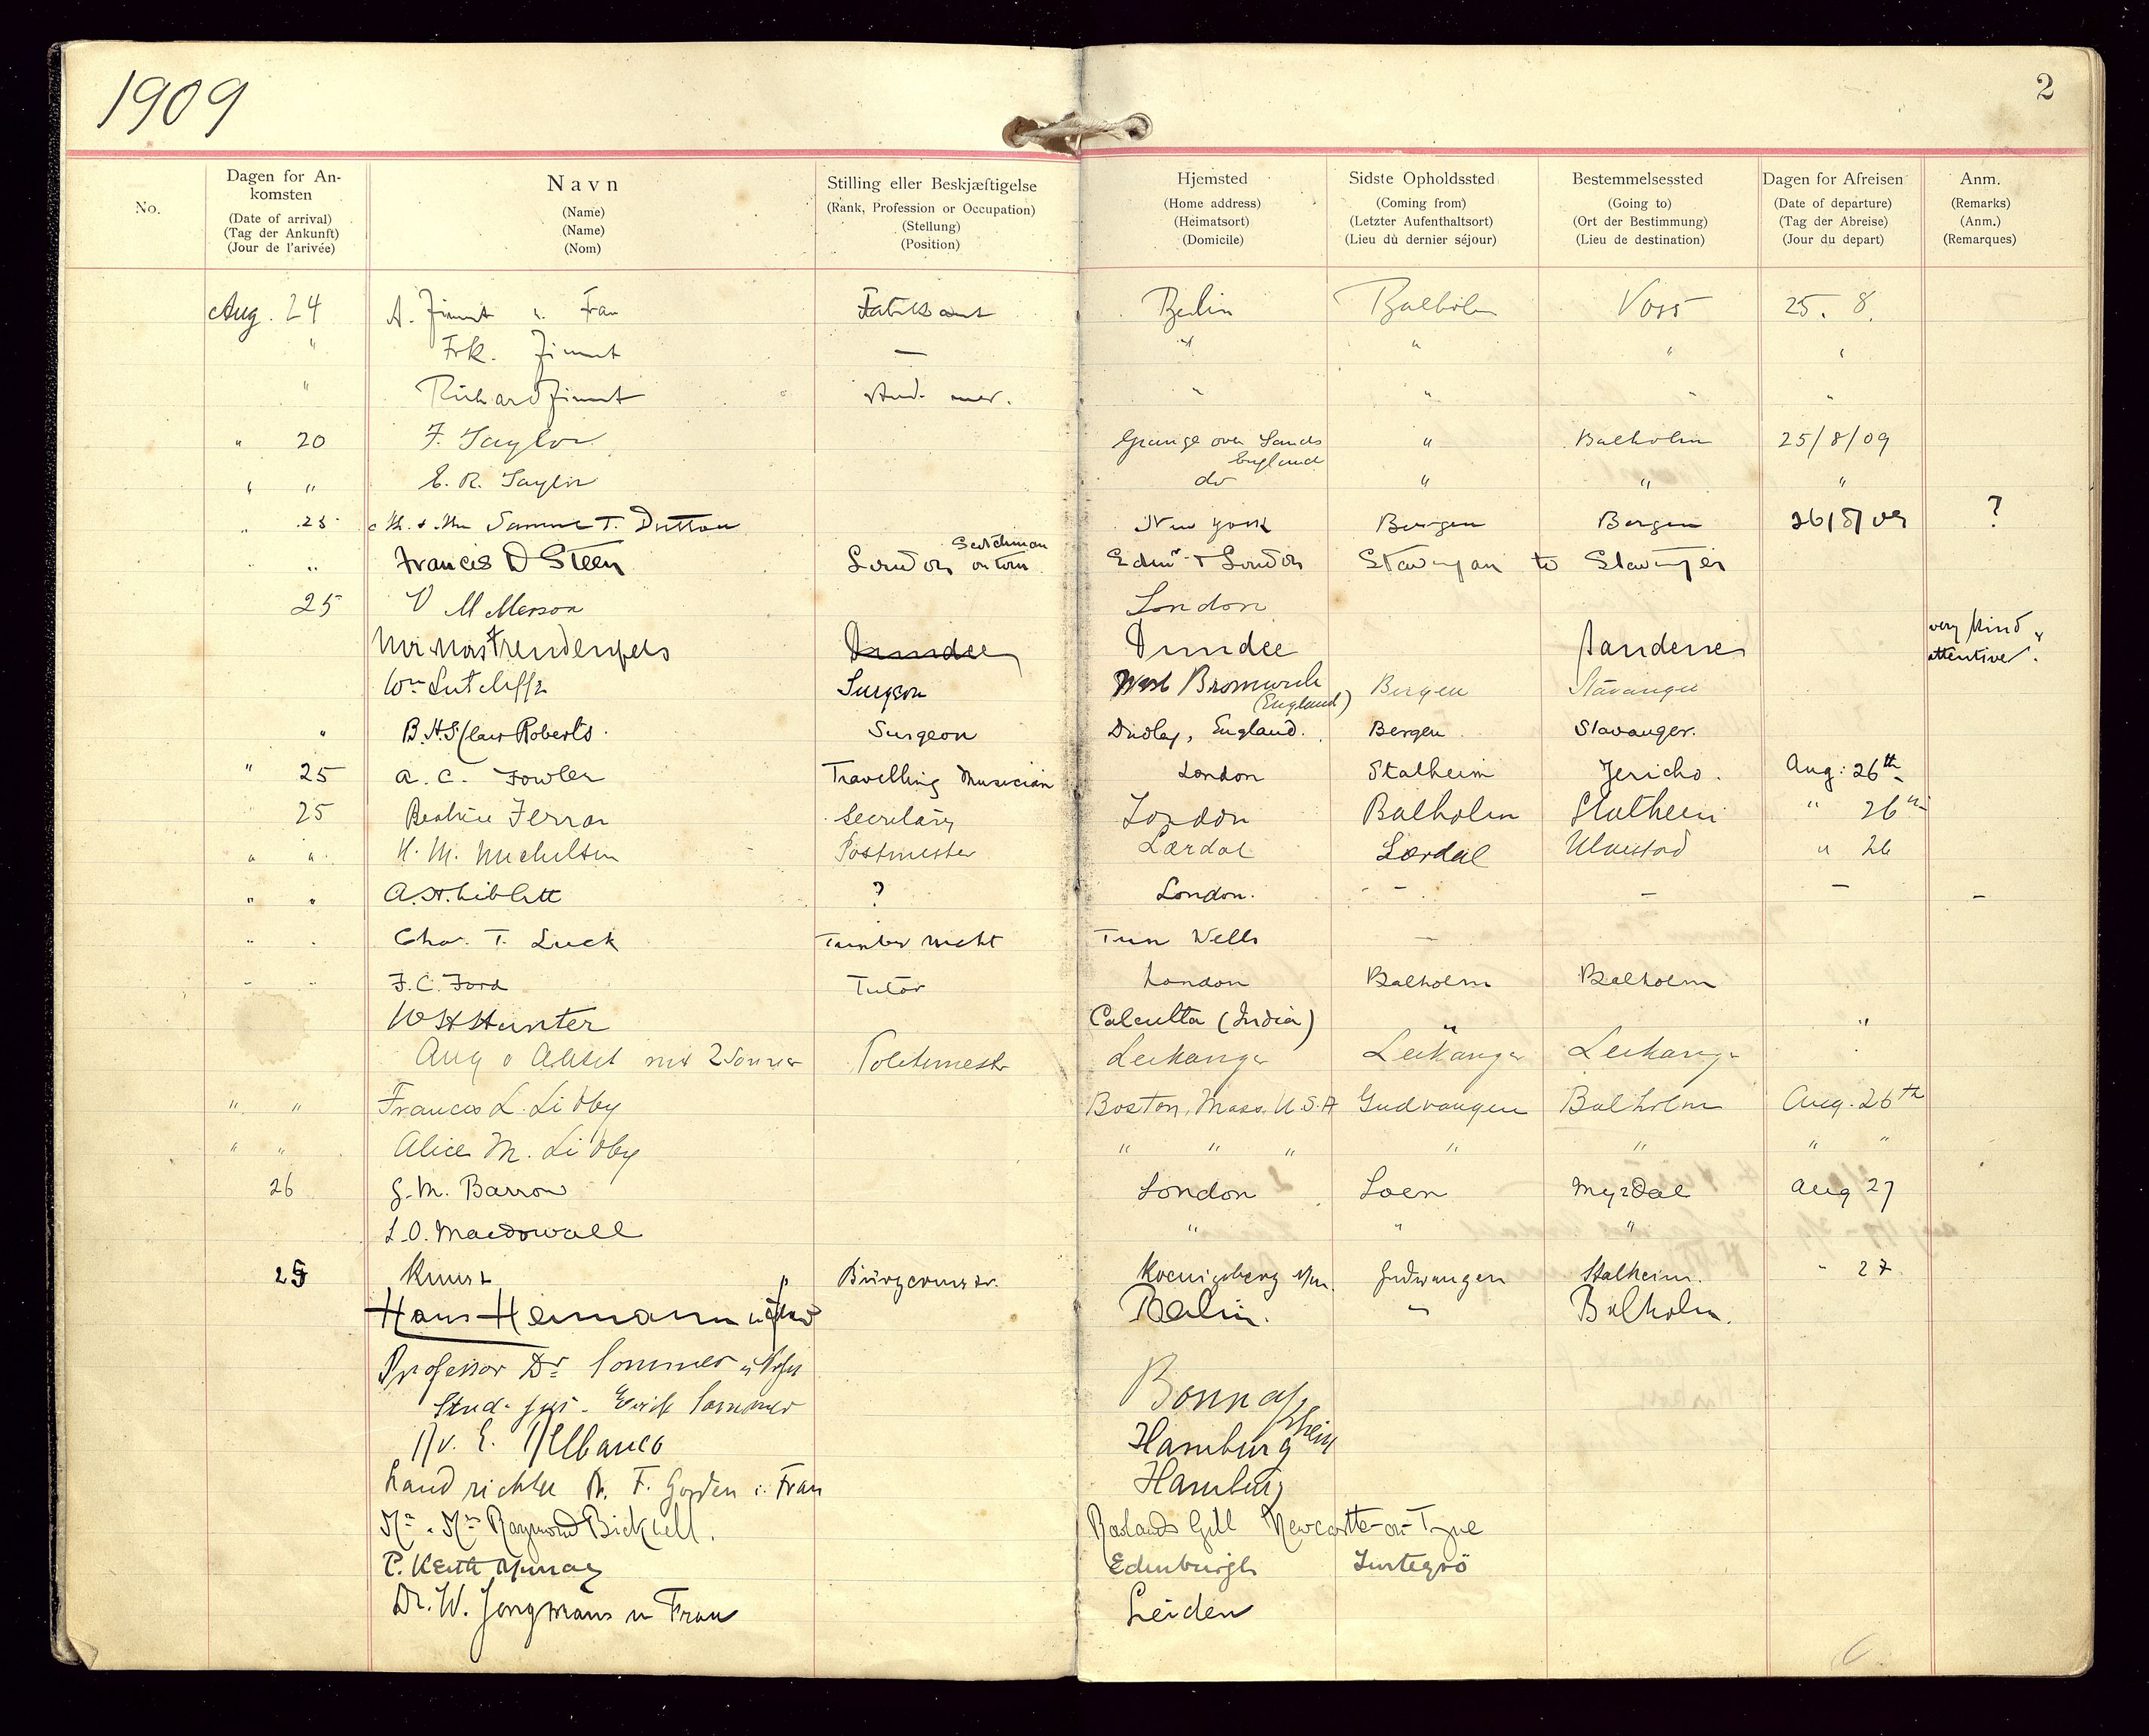 1909
2
No.
Dagen for An-
komsten
(Date of arrival)
(Tag der Ankunft)
(Jour de l'arivée)
Navn
(Name)
(Name)
(Nom)
Stilling eller Beskjæftigelse
(Rank, Profession or Occupation)
(Stellung)
(Position)
Hjemsted
(Home address)
(Heimatsort)
(Domicile)
Sidste Opholdssted
(Coming from)
(Letzter Aufenthaltsort)
(Lieu dù dernier séjour)
Bestemmelsessted
(Going to)
(Ort der Bestimmung)
(Lieu de destination)
Dagen for Afreisen
(Date of departure)
(Tag der Abreise)
(Jour du depart)
Anm.
(Remarks)
(Anm.)
(Remarques)
Aug. 24 A. u. Frau Fabrikant Berlin Balholm Voss 25. 8.
" Frk. — " " " "
" Richard " " " "
" 20 F. Taylor Grange over Sands England " Balholm 25/8/09
" " E. R. Taylor do " " "
" 25 Samuel T. Dutton New York Bergen Bergen 26/8/09 ?
" " Francis D Steen London Scotchman on tour Edinr + London Stavanger to Stavanger
25 V M Merson London
Mr Mrs Dundee Dundee very kind & attentive.
Wm Sutcliffe Surgeon West Bromwich (England) Bergen Stavanger
" B. H. St Clair Roberts. Surgeon Dudley, England. Bergen Stavanger.
" 25 A. C. Fowler Travelling Musician London Stalheim Jericho. Aug: 26th
25 Beatrice Ferrar Secretary London Balholm Stalheim " 26th
" " H. M. Michelsen Postmester Lærdal Lærdal " 26
" " A. H. ? London. - - — — -
" " Chas. T. Luck Timber Mcht Tun Wells —
" " F. C. Ford Tutor London Balholm Balholm
W H Hunter Calcutta (India) " "
Aug Leikanger Leikanger Leikanger
" " Francis L. Libby Boston, Mass. U.S.A Gudvangen Balholm Aug. 26th
" " Alice M. Libby " " " " " " "
26 G. M. Barrow London Loen Myrdal Aug 27
L. O. Macdowall " " "
25 Kunst Bürgermstr. Koenigsberg N/m. Gudvangen Stalheim. " 27.
Hans Heimann u. Frau Berlin. " Balholm.
Professor Dr Sommer
Stud. jur. Erich Sommer Bonn a/Rhein
E. Hamburg
Landrichter Dr. F. Gorden u. Frau Hamburg
Mr & Mrs Raymond Bicknell. Rowlands Gill Newcastle-on-Tyne
P. Keith Murray Edinburgh Turtegrö
Dr. W. Jongmans u Frau Leiden